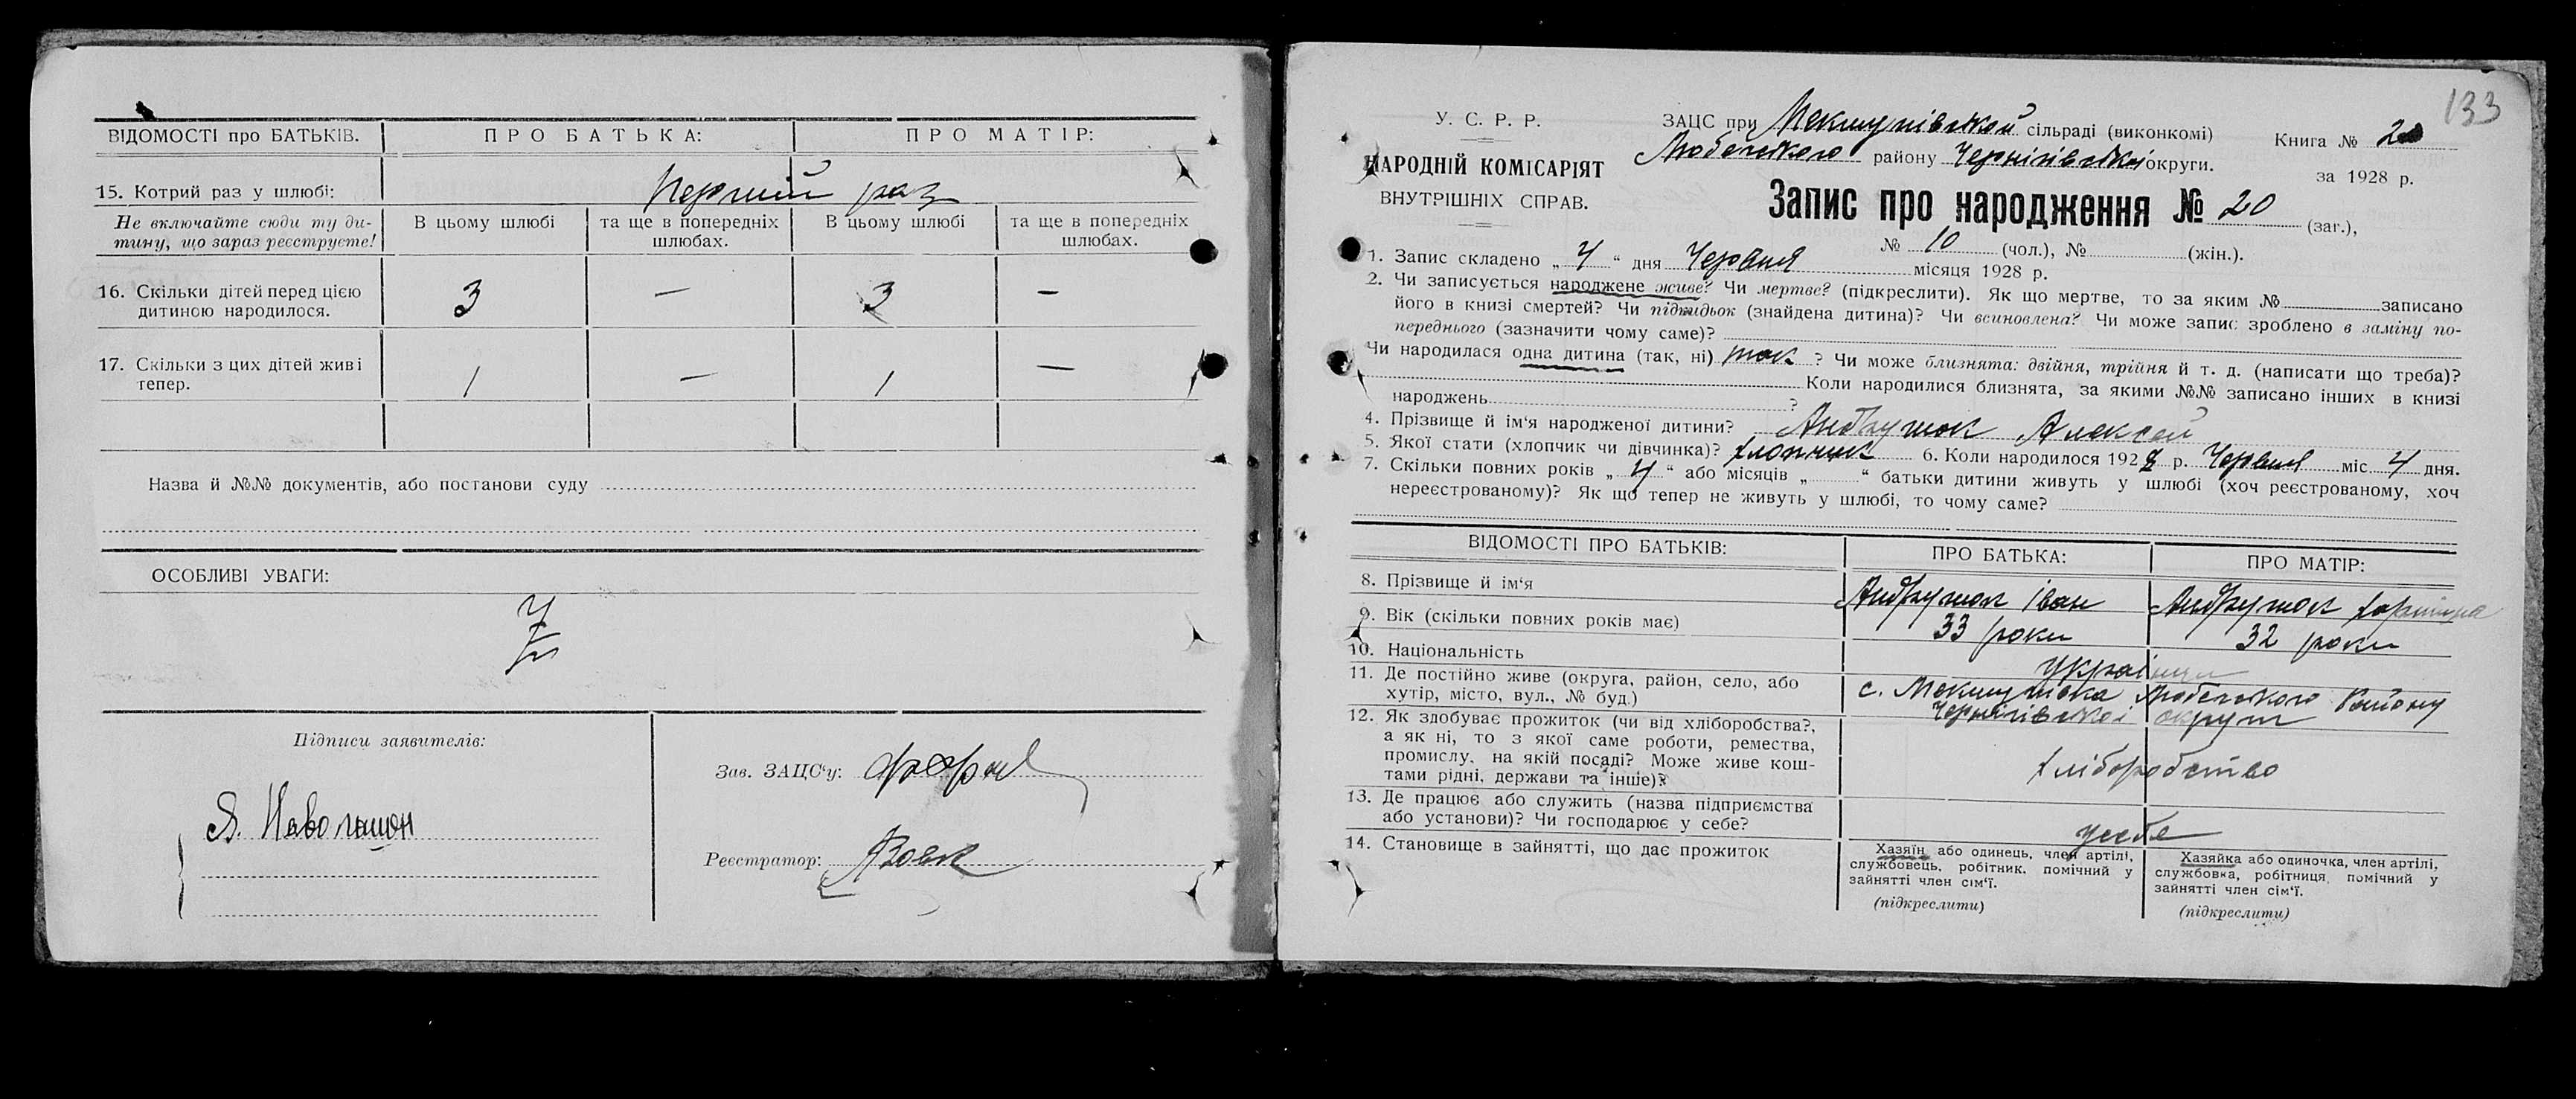 ВІДОМОСТІ про БАТЬКІВ. ПРО БАТЬКА: ПРО МАТІР:
15. Котрий раз у шлюбі: Перший раз
Не включайте сюди ту ди-
тину, що зараз реєструєте!
В цьому шлюбі
та ще в попередніх
шлюбах.
В цьому шлюбі
та ще в попередніх
шлюбах.
16. Скільки дітей перед цією
дитиною народилося.
3 — 3 —
17. Скільки з цих дітей живі
тепер.
1 — 1 —
Назва й №№ документів, або постанови суду
ОСОБЛИВІ УВАГИ:
Підписи заявителів:
Зав. ЗАЦС'у:
Реєстратор: Вовк
133
У. С. Р. Р.
НАРОДНІЙ КОМІСАРІЯТ
ВНУТРІШНІХ СПРАВ.
ЗАЦС при сільраді (виконкомі)
Любечського району Чернігівської округи.
Книга № 2
за 1928 р.
Запис про народження № 20 (заг.),
№ 10 (чол.), № (жін.).
1. Запис складено „ 4 “ дня Червня місяця 1928 р.
2. Чи записується народжене живе? Чи мертве? (підкреслити). Як що мертве, то за яким № записано
його в книзі смертей? Чи підкидьок (знайдена дитина)? Чи всиновлена? Чи може запис зроблено в заміну по-
переднього (зазначити чому саме)?
Чи народилася одна дитина (так, ні) так ? Чи може близнята: двійня, трійня й т. д. (написати що треба)?
Коли народилися близнята, за якими №№ записано інших в книзі
народжень ?
4. Прізвище й ім'я народженої дитини? Андрушок Алексей
5. Якої стати (хлопчик чи дівчинка)? хлопчик 6. Коли народилося 1928 р. Червня міс 4 дня.
7. Скільки повних років „ 4 “ або місяців „ “ батьки дитини живуть у шлюбі (хоч реєстрованому, хоч
нереєстрованому)? Як що тепер не живуть у шлюбі, то чому саме?
ВІДОМОСТІ ПРО БАТЬКІВ: ПРО БАТЬКА: ПРО МАТІР:
8. Прізвище й ім'я Андрушок Іван Андрушок
9. Вік (скільки повних років має) 33 роки 32 роки
10. Національність Українці
11. Де постійно живе (округа, район, село, або
хутір, місто, вул., № буд.)
с. Любечського Району
Чернігівської округи
12. Як здобуває прожиток (чи від хліборобства?,
а як ні, то з якої саме роботи, ремества,
промислу, на якій посаді? Може живе кош-
тами рідні, держави та інше)?
хліборобство
13. Де працює або служить (назва підприємства
або установи)? Чи господарює у себе?
у себе
14. Становище в зайнятті, що дає прожиток
Хазяїн або одинець, член артілі,
службовець, робітник, помічний у
зайнятті член сім'ї.
(підкреслити)
Хазяйка або одиночка, член артілі,
службовка, робітниця, помічний у
зайнятті член сім'ї.
(підкреслити)